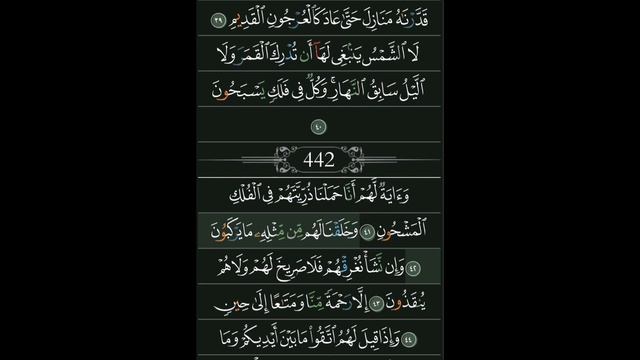 قَدَّرْنَٰهُ مَنَازِلَ حَتَّىٰ عَادَ كَٱلْعُرْجُونِ ٱلْقَدِيمِ ٣٩
لَا ٱلشَّمْسُ يَنۢبَغِى لَهَآ أَن تُدْرِكَ ٱلْقَمَرَ وَلَا
ٱلَّيْلُ سَابِقُ ٱلنَّهَارِ ۚ وَكُلٌّ فِى فَلَكٍ يَسْبَحُونَ
٤٠
442
وَءَايَةٌ لَّهُمْ أَنَّا حَمَلْنَا ذُرِّيَّتَهُمْ فِى ٱلْفُلْكِ
ٱلْمَشْحُونِ ٤١ وَخَلَقْنَا لَهُم مِّن مِّثْلِهِۦ مَا يَرْكَبُونَ
٤٢ وَإِن نَّشَأْ نُغْرِقْهُمْ فَلَا صَرِيخَ لَهُمْ وَلَا هُمْ
يُنقَذُونَ ٤٣ إِلَّا رَحْمَةً مِّنَّا وَمَتَٰعًا إِلَىٰ حِينٍ
٤٤ وَإِذَا قِيلَ لَهُمُ ٱتَّقُوا۟ مَا بَيْنَ أَيْدِيكُمْ وَمَا